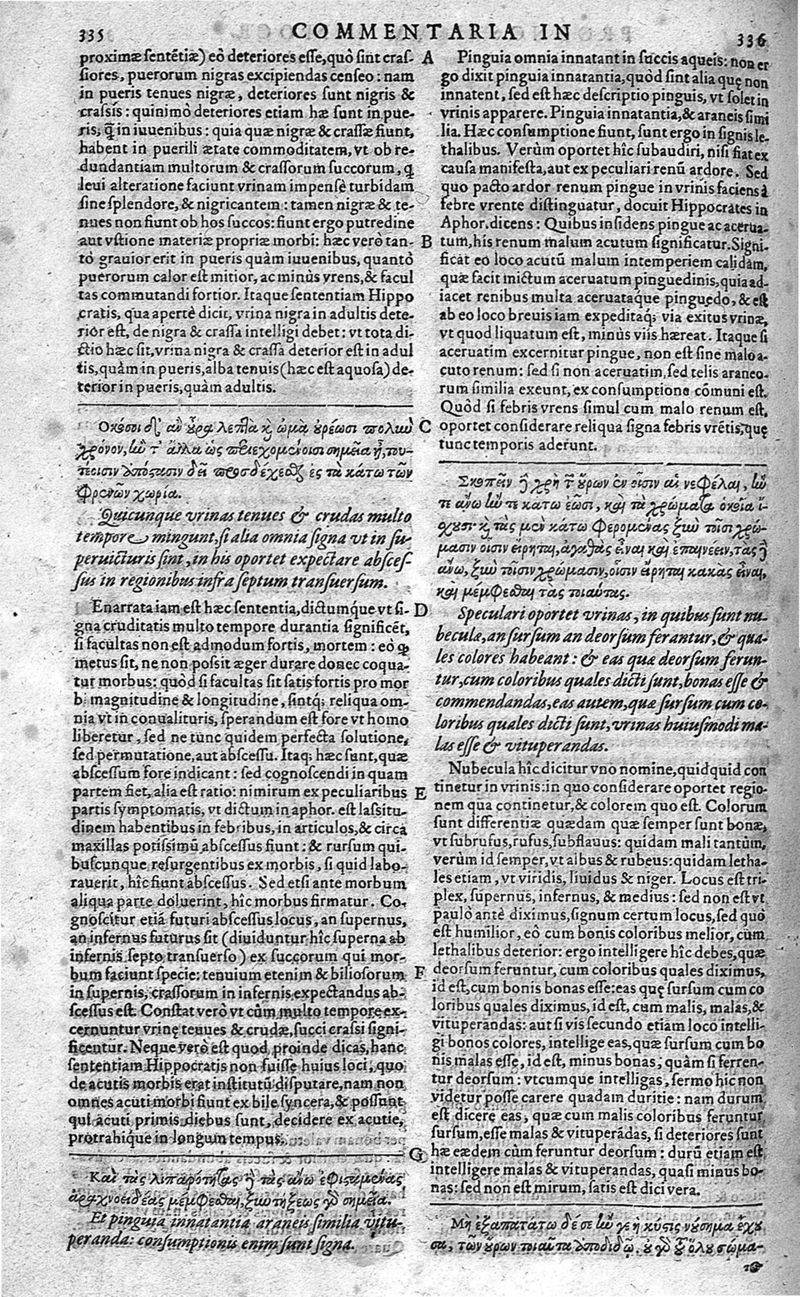 335
COMMENTARIA IN
336
proximæ sentẽtiæ) eò deteriores esse, quò sint cras-
siores, puerorum nigras excipiendas censeo: nam
in pueris tenues nigræ, deteriores sunt nigris &
crassis: quinimò deteriores etiam hæ sunt in pue-
ris, ꝗ̃ in iuuenibus: quia quæ nigræ & crassæ fiunt,
habent in puerili ætate commoditatem, vt ob re-
dundantiam multorum & crassorum succorum, ꝗ
leui alteratione faciunt vrinam impensè turbidam
sine splendore, & nigricantem: tamen nigræ & te-
nues non fiunt ob hos succos: fiunt ergo putredine
aut vstione materiæ propriæ morbi: hæc verò tan-
tò grauior erit in pueris quàm iuuenibus, quantò
puerorum calor est mitior, ac minùs vrens, & facul
tas commutandi fortior. Itaque sententiam Hippo
cratis, qua apertè dicit, vrina nigra in adultis dete-
rior est, de nigra & crassa intelligi debet: vt tota di-
ctio hæc sit, vrina nigra & crassa deterior est in adul
tis, quàm in pueris, alba tenuis (hæc est aquosa) de-
terior in pueris, quàm adultis.
Ὁκόσοι δὲ ἂν οὖρα λεπτὰ καὶ ὠμὰ οὐρέωσι πολὺν
χρόνον, ἢν τ' ἄλλα ὡς περιεσομένοισι σημεῖα ᾖ, του-
τέοισιν ἀπόστασιν δεῖ προσδέχεσθαι ἐς τὰ κάτω τῶν
φρενῶν χωρία.
Quicunque vrinas tenues & crudas multo
tempore mingunt, si alia omnia signa vt in su
peruicturis sint, in his oportet expectare absces-
sus in regionibus infra septum transuersum.
Enarrata iam est hæc sententia, dictumque vt si-
gna cruditatis multo tempore durantia significẽt,
si facultas non est admodum fortis, mortem: eo ꝙ
metus sit, ne non possit æger durare donec coqua-
tur morbus: quòd si facultas sit satis fortis pro mor
bi magnitudine & longitudine, sintq; reliqua om-
nia vt in conualituris, sperandum est fore vt homo
liberetur, sed ne tunc quidem perfecta solutione,
sed permutatione, aut abscessu. Itaq; hæc sunt, quæ
abscessum fore indicant: sed cognoscendi in quam
partem fiet, alia est ratio: nimirum ex peculiaribus
partis symptomatis, vt dictum in aphor. est lassitu-
dinem habentibus in febribus, in articulos, & circa
maxillas potissimũ abscessus fiunt: & rursum qui-
buscunque resurgentibus ex morbis, si quid labo-
rauerit, hîc fiunt abscessus. Sed etsi ante morbum
aliqua parte doluerint, hîc morbus firmatur. Co-
gnoscitur etiã futuri abscessus locus, an supernus,
an infernus futurus sit (diuiduntur hîc superna ab
infernis septo transuerso) ex succorum qui mor-
bum faciunt specie: tenuium etenim & biliosorum
in supernis, crassorum in infernis expectandus ab-
scessus est. Constat verò vt cùm multo tempore ex-
cernuntur vrinę tenues & crudæ, succi crassi signi-
ficentur. Neque verò est quod proinde dicas, hanc
sententiam Hippocratis non fuisse huius loci, quo
de acutis morbis erat institutũ disputare, nam non
omnes acuti morbi fiunt ex bile syncera, & possunt
qui acuti primis diebus sunt, decidere ex acutie,
protrahique in longum tempus.
Καὶ τὰς λιπαρότητας δὲ τὰς ἄνω ἐφισταμένας
ἀραχνοειδέας μέμφεσθαι, ξυντήξεως γὰρ σημεῖα.
Et pinguia innatantia araneis similia vitu-
peranda: consumptionis enim sunt signa.
A
B
C
D
E
F
G
Pinguia omnia innatant in succis aqueis: non er
go dixit pinguia innatantia, quòd sint alia quę non
innatent, sed est hæc descriptio pinguis, vt solet in
vrinis apparere. Pinguia innatantia, & araneis simi
lia. Hæc consumptione fiunt, sunt ergo in signis le-
thalibus. Verùm oportet hîc subaudiri, nisi fiat ex
causa manifesta, aut ex peculiari renũ ardore. Sed
quo pacto ardor renum pingue in vrinis faciens à
febre vrente distinguatur, docuit Hippocrates in
Aphor. dicens: Quibus insidens pingue ac acerua-
tum, his renum malum acutum significatur. Signi-
ficat eo loco acutũ malum intemperiem calidam,
quæ facit mictum aceruatum pinguedinis, quia ad-
iacet renibus multa aceruataque pinguedo, & est
ab eo loco breuis iam expeditaq; via exitus vrinæ,
vt quod liquatum est, minùs viis hæreat. Itaque si
aceruatim excernitur pingue, non est sine malo a-
cuto renum: sed si non aceruatim, sed telis araneo-
rum similia exeunt, ex consumptione cõmuni est.
Quòd si febris vrens simul cum malo renum est,
oportet considerare reliqua signa febris vrẽtis, quę
tunc temporis aderunt.
Σκοπεῖν δὲ χρὴ τῶν οὔρων ἐν οἷσιν αἱ νεφέλαι, ἤν
τε ἄνω ἤν τε κάτω ἔωσι, καὶ τὰ χρώματα ὁκοῖα ἴ-
σχουσι· καὶ τὰς μὲν κάτω φερομένας ξὺν τοῖσι χρώ-
μασιν οἷσιν εἴρηται, ἀγαθὰς εἶναι καὶ ἐπαινέειν, τὰς δὲ
ἄνω, ξὺν τοῖσιν χρώμασιν, οἷσιν εἴρηται κακὰς εἶναι,
καὶ μέμφεσθαι τὰς τοιαύτας.
Speculari oportet vrinas, in quibus sunt nu-
beculæ, an sursum an deorsum ferantur, & qua-
les colores habeant: & eas quæ deorsum ferun-
tur, cum coloribus quales dicti sunt, bonas esse &
commendandas, eas autem, quæ sursum cum co-
loribus quales dicti sunt, vrinas huiusmodi ma-
las esse & vituperandas.
Nubecula hîc dicitur vno nomine, quidquid con
tinetur in vrinis: in quo considerare oportet regio-
nem qua continetur, & colorem quo est. Colorum
sunt differentiæ quædam quæ semper sunt bonæ,
vt subrufus, rufus, subflauus: quidam mali tantùm,
verùm id semper, vt albus & rubeus: quidam letha-
les etiam, vt viridis, liuidus & niger. Locus est tri-
plex, supernus, infernus, & medius: sed non est vt
paulò antè diximus, signum certum locus, sed quò
est humilior, eò cum bonis coloribus melior, cum
lethalibus deterior: ergo intelligere hîc debes, quæ
deorsum feruntur, cum coloribus quales diximus,
id est, cum bonis bonas esse: eas quę sursum cum co
loribus quales diximus, id est, cum malis, malas, &
vituperandas: aut si vis secundo etiam loco intelli-
gi bonos colores, intellige eas, quæ sursum cum bo
nis malas esse, id est, minus bonas, quàm si ferren-
tur deorsum: vtcumque intelligas, sermo hic non
videtur posse carere quadam duritie: nam durum
est dicere eas, quæ cum malis coloribus feruntur
sursum, esse malas & vituperãdas, si deteriores sunt
hæ eædem cùm feruntur deorsum: durũ etiam est
intelligere malas & vituperandas, quasi minus bo-
nas: sed non est mirum, satis est dici vera.
Μὴ ἐξαπατάτω δέ σε ἤν γε ἡ κύστις νόσημα ἔχου
σα, τῶν οὔρων τοιαῦτα ἀποδιδῷ, οὐ γὰρ ὅλου σώμα-